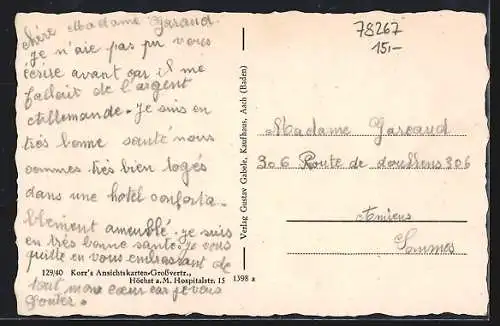 chère Madame Garaud.
Je n'aie pas pu vous
écrire avant car il me
fallait de l'argent
allemande. Je suis en
très bonne santé nous
sommes très bien logés
dans une hotel conforta-
blement ameublé. je suis
en très bonne sante. je vous
quitte en vous embrassant de
tout mon cœur car je vous
129/40 Korr's Ansichtskarten-Großvertr.,
Höchst a.M. Hospitalstr. 15 1398 a
Verlag Gustav Gabele, Kaufhaus, Aach (Baden)
78267
15,-
Madame Garaud
306 Route de doullens 306
Amiens
Sommes